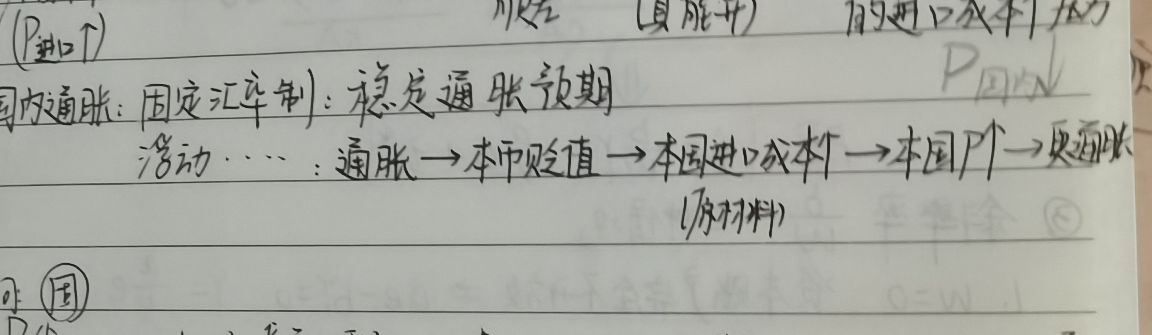 (P进口↑) 的进口成本↑
P国内↓
国内通胀:固定汇率制:稳定通胀预期
浮动····:通胀→本币贬值→本国进口成本↑→本国P↑→更通胀
(原材料)
固